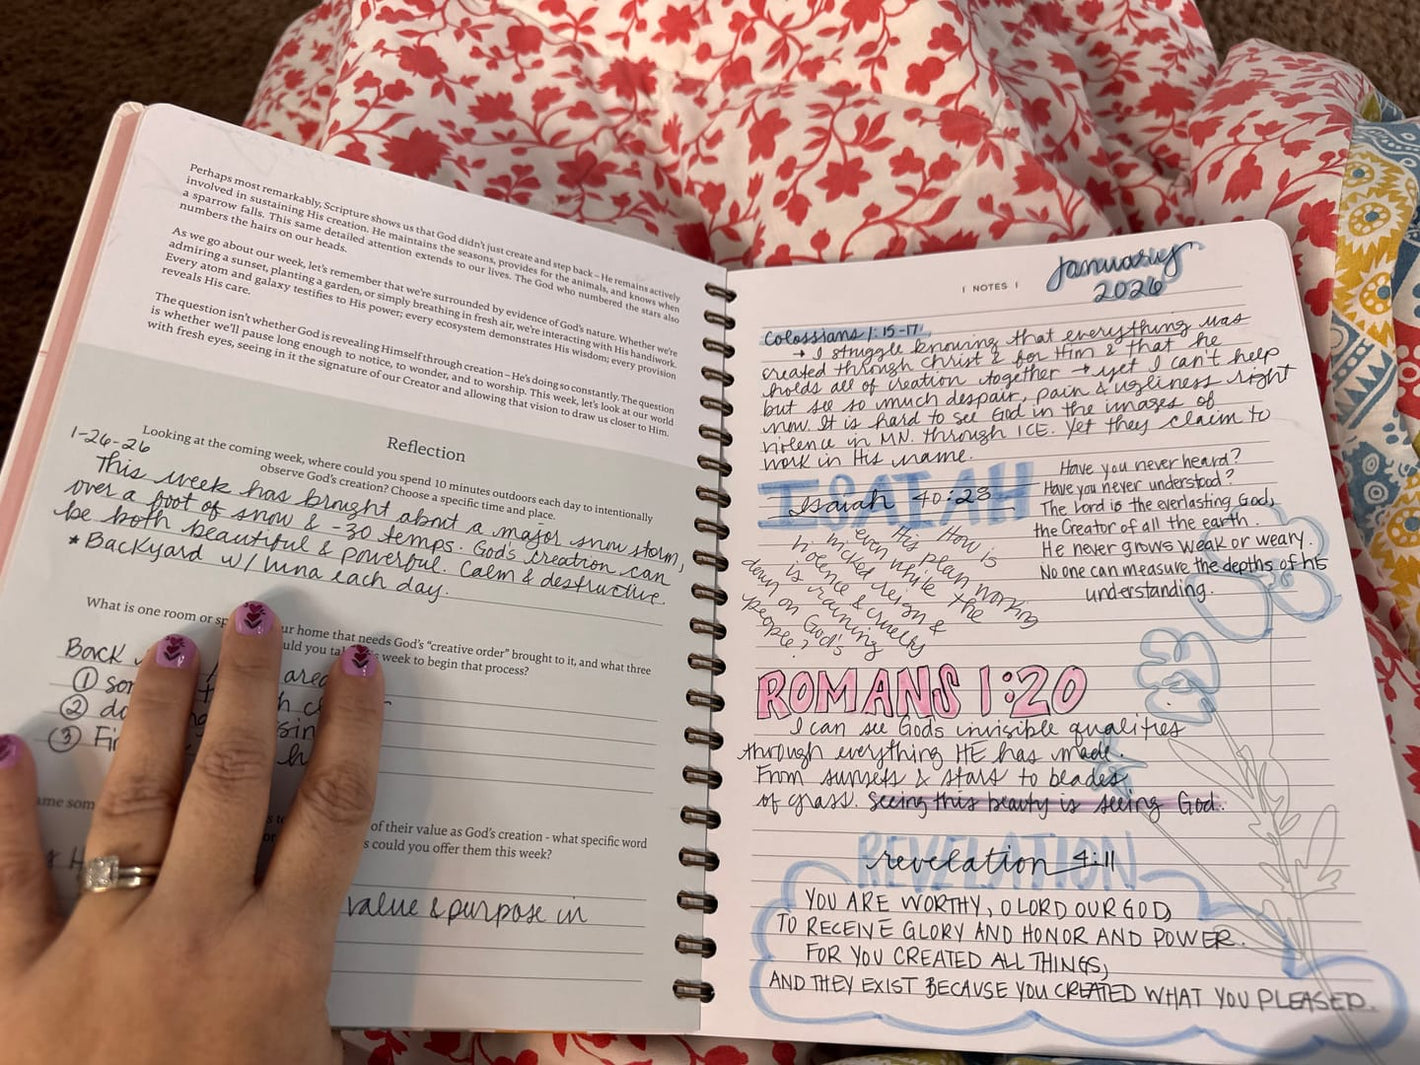 Perhaps most remarkably, Scripture shows us that God didn't just create and step back – He remains actively
involved in sustaining His creation. He maintains the seasons, provides for the animals, and knows when
a sparrow falls. This same detailed attention extends to our lives. The God who numbered the stars also
numbers the hairs on our heads.
As we go about our week, let's remember that we're surrounded by evidence of God's nature. Whether we're
admiring a sunset, planting a garden, or simply breathing in fresh air, we're interacting with His handiwork.
Every atom and galaxy testifies to His power; every ecosystem demonstrates His wisdom; every provision
reveals His care.
The question isn't whether God is revealing Himself through creation – He's doing so constantly. The question
is whether we'll pause long enough to notice, to wonder, and to worship. This week, let's look at our world
with fresh eyes, seeing in it the signature of our Creator and allowing that vision to draw us closer to Him.
Reflection
1-26-26
Looking at the coming week, where could you spend 10 minutes outdoors each day to intentionally
observe God's creation? Choose a specific time and place.
This week has brought about a major snow storm,
over a foot of snow & -30 temps. God's creation can
be both beautiful & powerful. Calm & destructive.
* Backyard w/ luna each day.
What is one room or ur home that needs God's "creative order" brought to it, and what three
uld you week to begin that process?
Back area
①
②
③
ame som of their value as God's creation - what specific word
s could you offer them this week?
value & purpose in
| NOTES |
January
2026
Colossians 1:15-17
→ I struggle knowing that everything was
created through Christ & for Him & that he
holds all of creation together → yet I can't help
but see so much despair, pain & ugliness right
now. It is hard to see God in the images of
violence in MN. through ICE. Yet they claim to
work in His name.
ISAIAH
Isaiah 40:23
How is
His plan working
even while the
wicked reign &
violence & cruelty
is raining
down on God's
people?
Have you never heard?
Have you never understood?
The Lord is the everlasting God,
the Creator of all the earth.
He never grows weak or weary.
No one can measure the depths of his
understanding.
ROMANS 1:20
I can see Gods invisible qualities
through everything HE has made.
From sunsets & stars to blades
of grass. Seeing this beauty is seeing God.
REVELATION
revelation 4:11
YOU ARE WORTHY, O LORD OUR GOD,
TO RECEIVE GLORY AND HONOR AND POWER.
FOR YOU CREATED ALL THINGS,
AND THEY EXIST BECAUSE YOU CREATED WHAT YOU PLEASED.